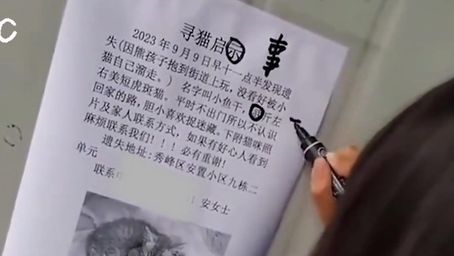 C
寻猫启示 事
2023年9月9日早十一点半发现遗
失(因熊孩子抱到街道上玩，没看好被小
猫自己溜走。)名字叫小鱼干，斤左
右美短虎斑猫。平时不出门所以不认识
回家的路，胆小喜欢捉迷藏。下附猫咪照
片及家人联系方式，如果有好心人看到
麻烦联系我们！！！必有重谢！
遗失地址：秀峰区安置小区九栋二
单元
联系 安女士